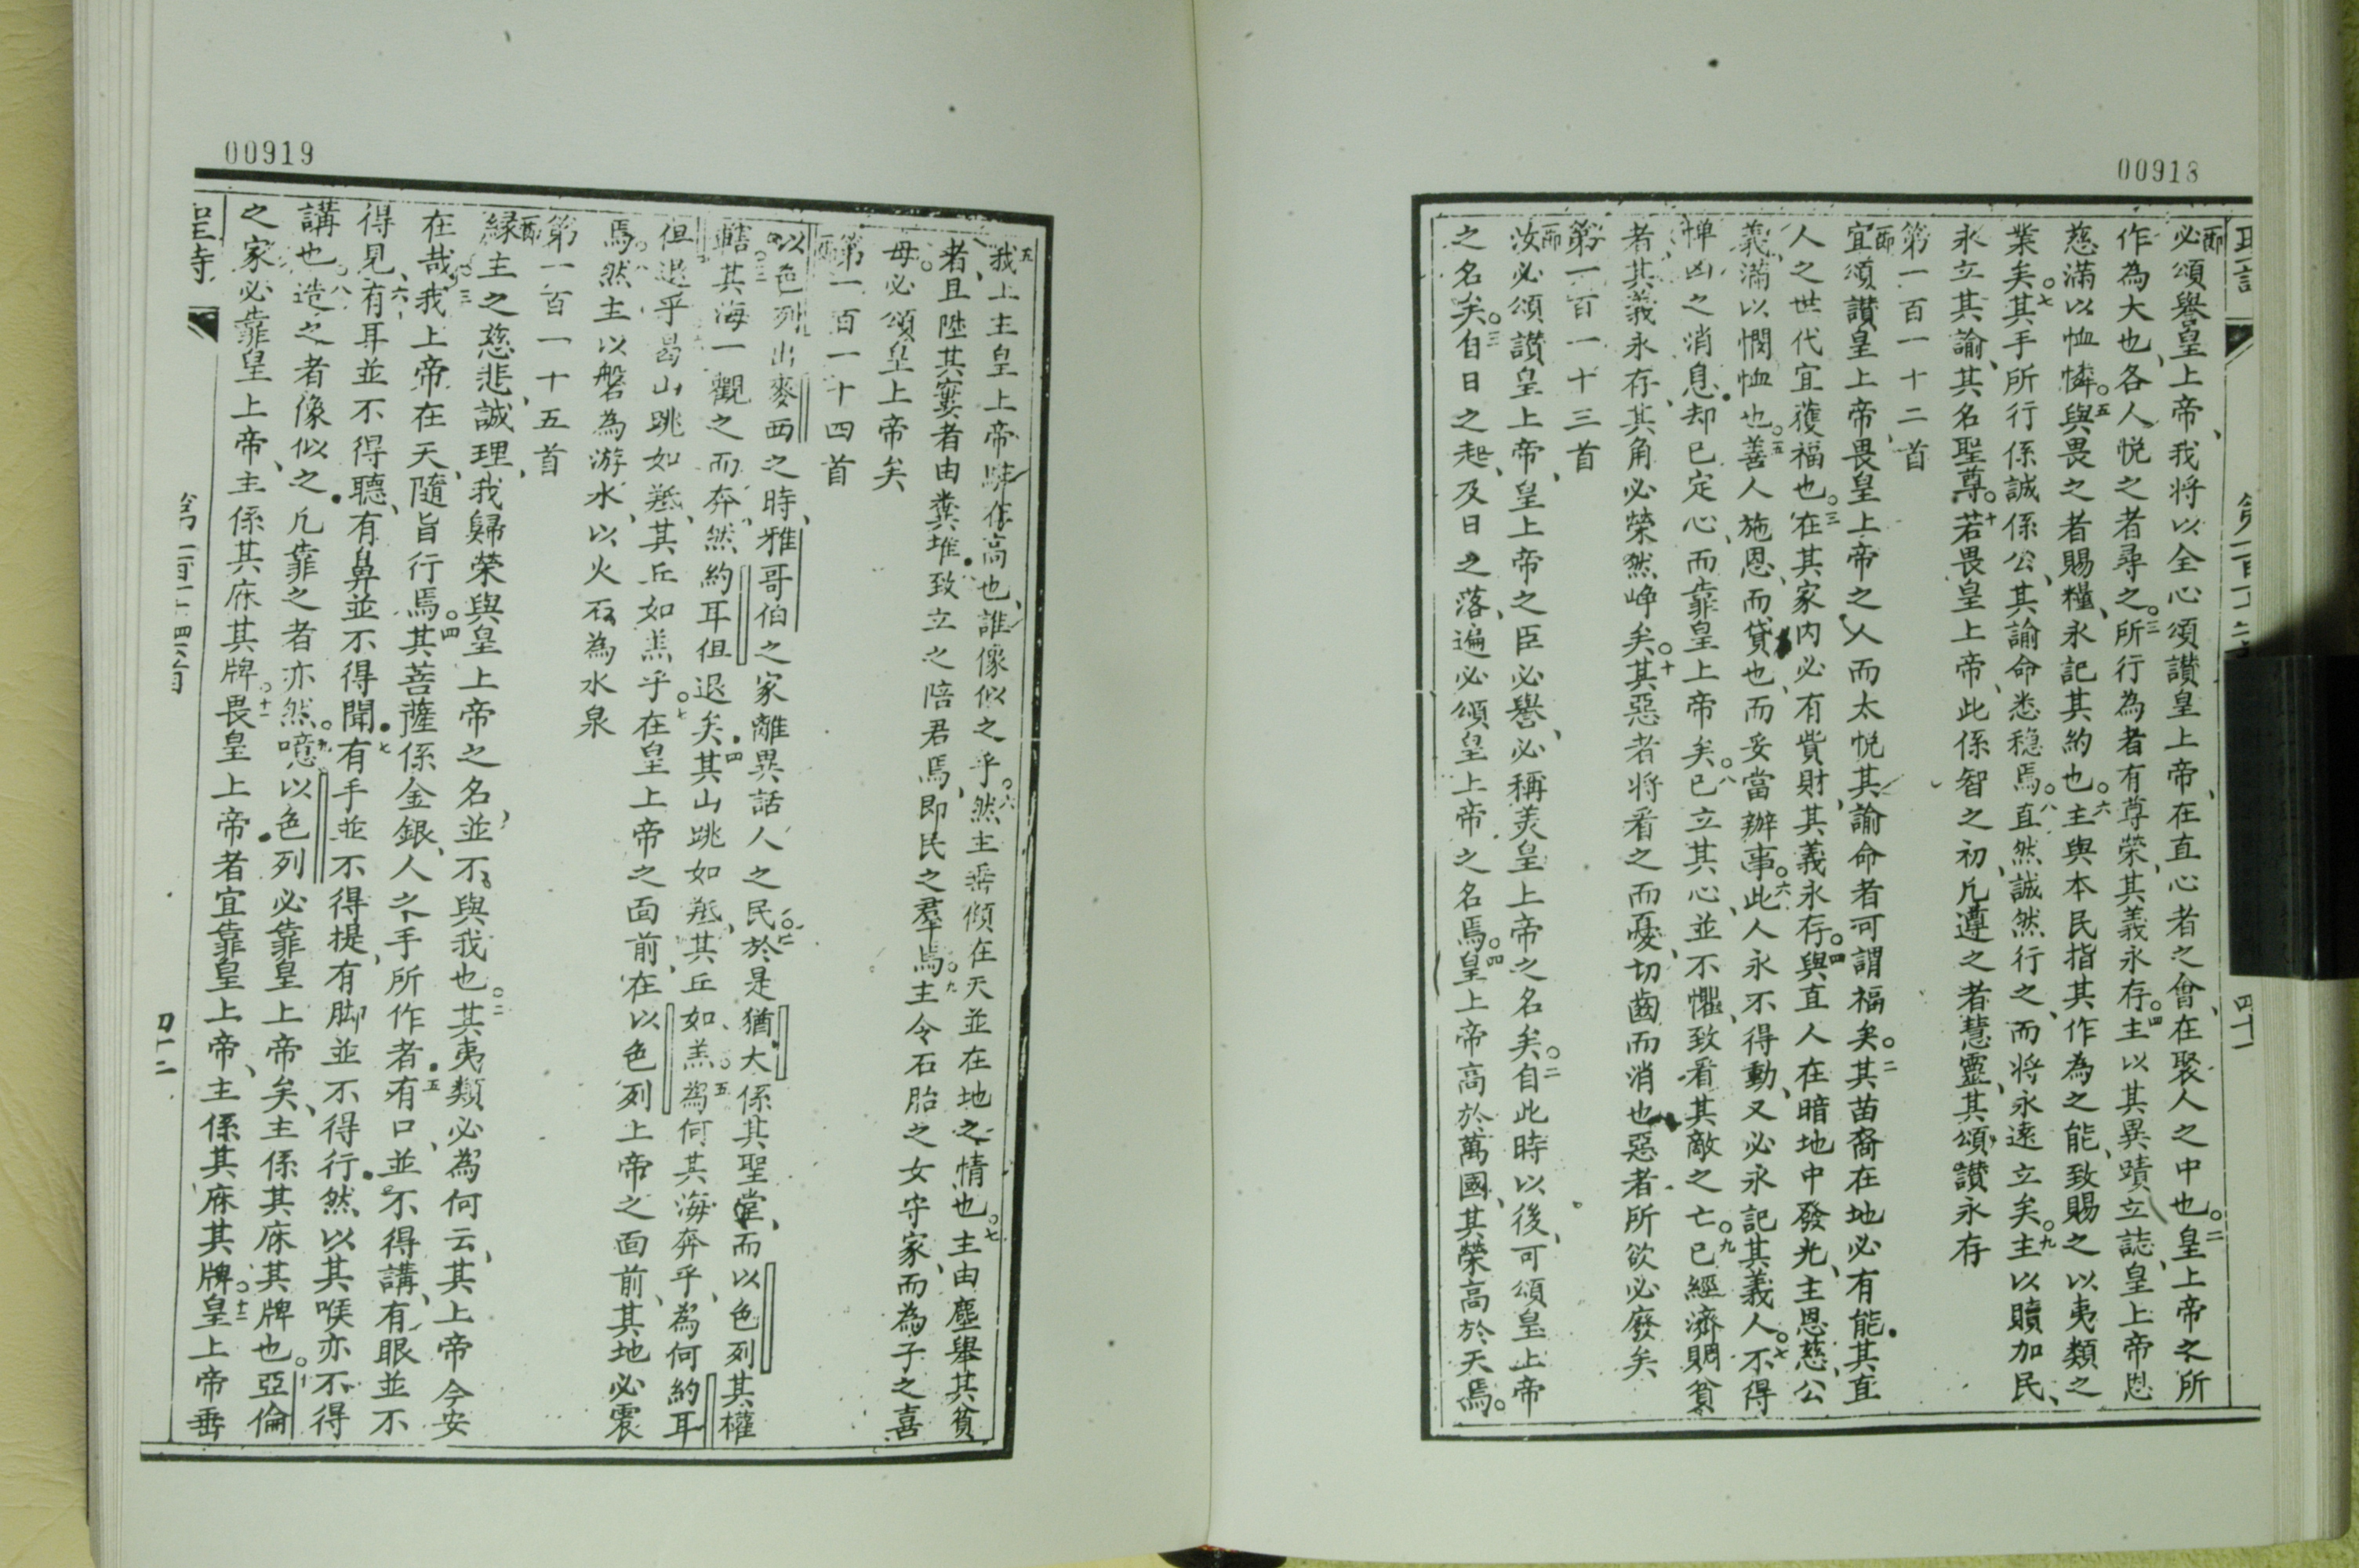 00918
必頌譽皇上帝、我將以全心頌讚皇上帝、在直心者之會、在聚人之中也。二皇上帝之所
作為大也、各人悅之者尋之。三所行為者有尊榮、其義永存。四主以其異蹟立誌、皇上帝恩
慈滿以恤憐。五與畏之者賜糧、永記其約也。六主與本民指其作為之能、致賜之以夷類之
業矣。七其手所行係誠係公、其諭命悉穩焉。八直然誠然行之、而將永遠立矣。九主以贖加民、
永立其諭、其名聖尊。十若畏皇上帝、此係智之初、凡遵之者慧靈、其頌讚永存
第一百一十二首
宜頌讚皇上帝、畏皇上帝之人而太悅其諭命者可謂福矣。二其苗裔在地必有能。其直
人之世代宜獲福也。三在其家內必有貲財、其義永存。四與直人在暗地中發光、主恩慈、公
義、滿以憫恤也。五善人施恩、而貸也、而妥當辦事。六此人永不得動、又必永記其義人。七不得
憚凶之消息、却已定心、而靠皇上帝矣。八已立其心、並不懼、致看其敵之亡。九已經濟賙貧
者、其義永存、其角必榮然崢矣。十其惡者將看之而憂、切齒而消也、惡者所欲必廢矣
第一百一十三首
汝必頌讚皇上帝、皇上帝之臣必譽、必稱美皇上帝之名矣。二自此時以後、可頌皇上帝
之名矣。三自日之起、及日之落、遍必頌皇上帝之名焉。四皇上帝高於萬國、其榮高於天焉。
第一百
四十一
00919
五我上主皇上帝
作高也、誰像似之乎。六然主垂傾在天並在地之情也。七主由塵舉其貧
者、且陞其窶者由糞堆、八致立之陪君焉、即民之羣焉。九主令石胎之女守家、而為子之喜
母。必頌皇上帝矣
第一百一十四首
以色列出麥西之時、雅哥伯之家離異話人之民。二於是猶大係其聖堂、而以色列其權
轄。三其海一觀之而奔、然約耳但退矣。四其山跳如羝、其丘如羔。五為何其海奔乎、為何約耳
但退乎。六曷山跳如羝、其丘如羔乎。七在皇上帝之面前、在以色列上帝之面前、其地必震
焉。八然主以磐為游水、以火石為水泉
第一百一十五首
緣主之慈悲、誠理、我歸榮與皇上帝之名、並不與我也。二其夷類必為何云、其上帝今安
在哉。三我上帝在天、隨旨行焉。四其菩薩係金銀、人之手所作者。五有口、並不得講、有眼並不
得見、六有耳並不得聽、有鼻並不得聞。七有手並不得提、有脚並不得行。然以其喉亦不得
講也。八造之者像似之。凡靠之者亦然。九噫以色列。必靠皇上帝矣、主係其庥其牌也。十亞倫
之家必靠皇上帝、主係其庥其牌。十一畏皇上帝者宜靠皇上帝、主係其庥其牌。十二皇上帝垂
聖詩
第一百一十四首
四十二